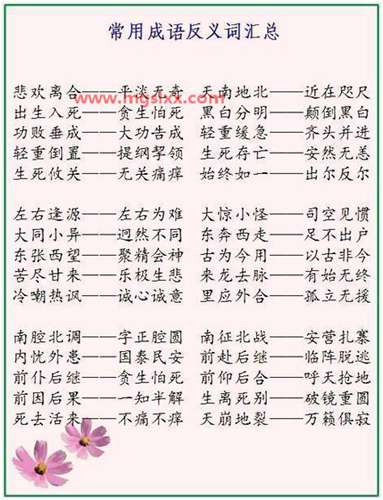 常用成语反义词汇总
www.mgsixx.com
悲欢离合——平淡无奇 天南地北——近在咫尺
出生入死——贪生怕死 黑白分明——颠倒黑白
功败垂成——大功告成 轻重缓急——齐头并进
轻重倒置——提纲挈领 生死存亡——安然无恙
生死攸关——无关痛痒 始终如一——出尔反尔
左右逢源——左右为难 大惊小怪——司空见惯
大同小异——迥然不同 东奔西走——足不出户
东张西望——聚精会神 古为今用——以古非今
苦尽甘来——乐极生悲 来龙去脉——有始无终
冷嘲热讽——诚心诚意 里应外合——孤立无援
南腔北调——字正腔圆 南征北战——安营扎寨
内忧外患——国泰民安 前赴后继——临阵脱逃
前仆后继——贪生怕死 前仰后合——呼天抢地
前因后果——一知半解 生离死别——破镜重圆
死去活来——不痛不痒 天崩地裂——万籁俱寂